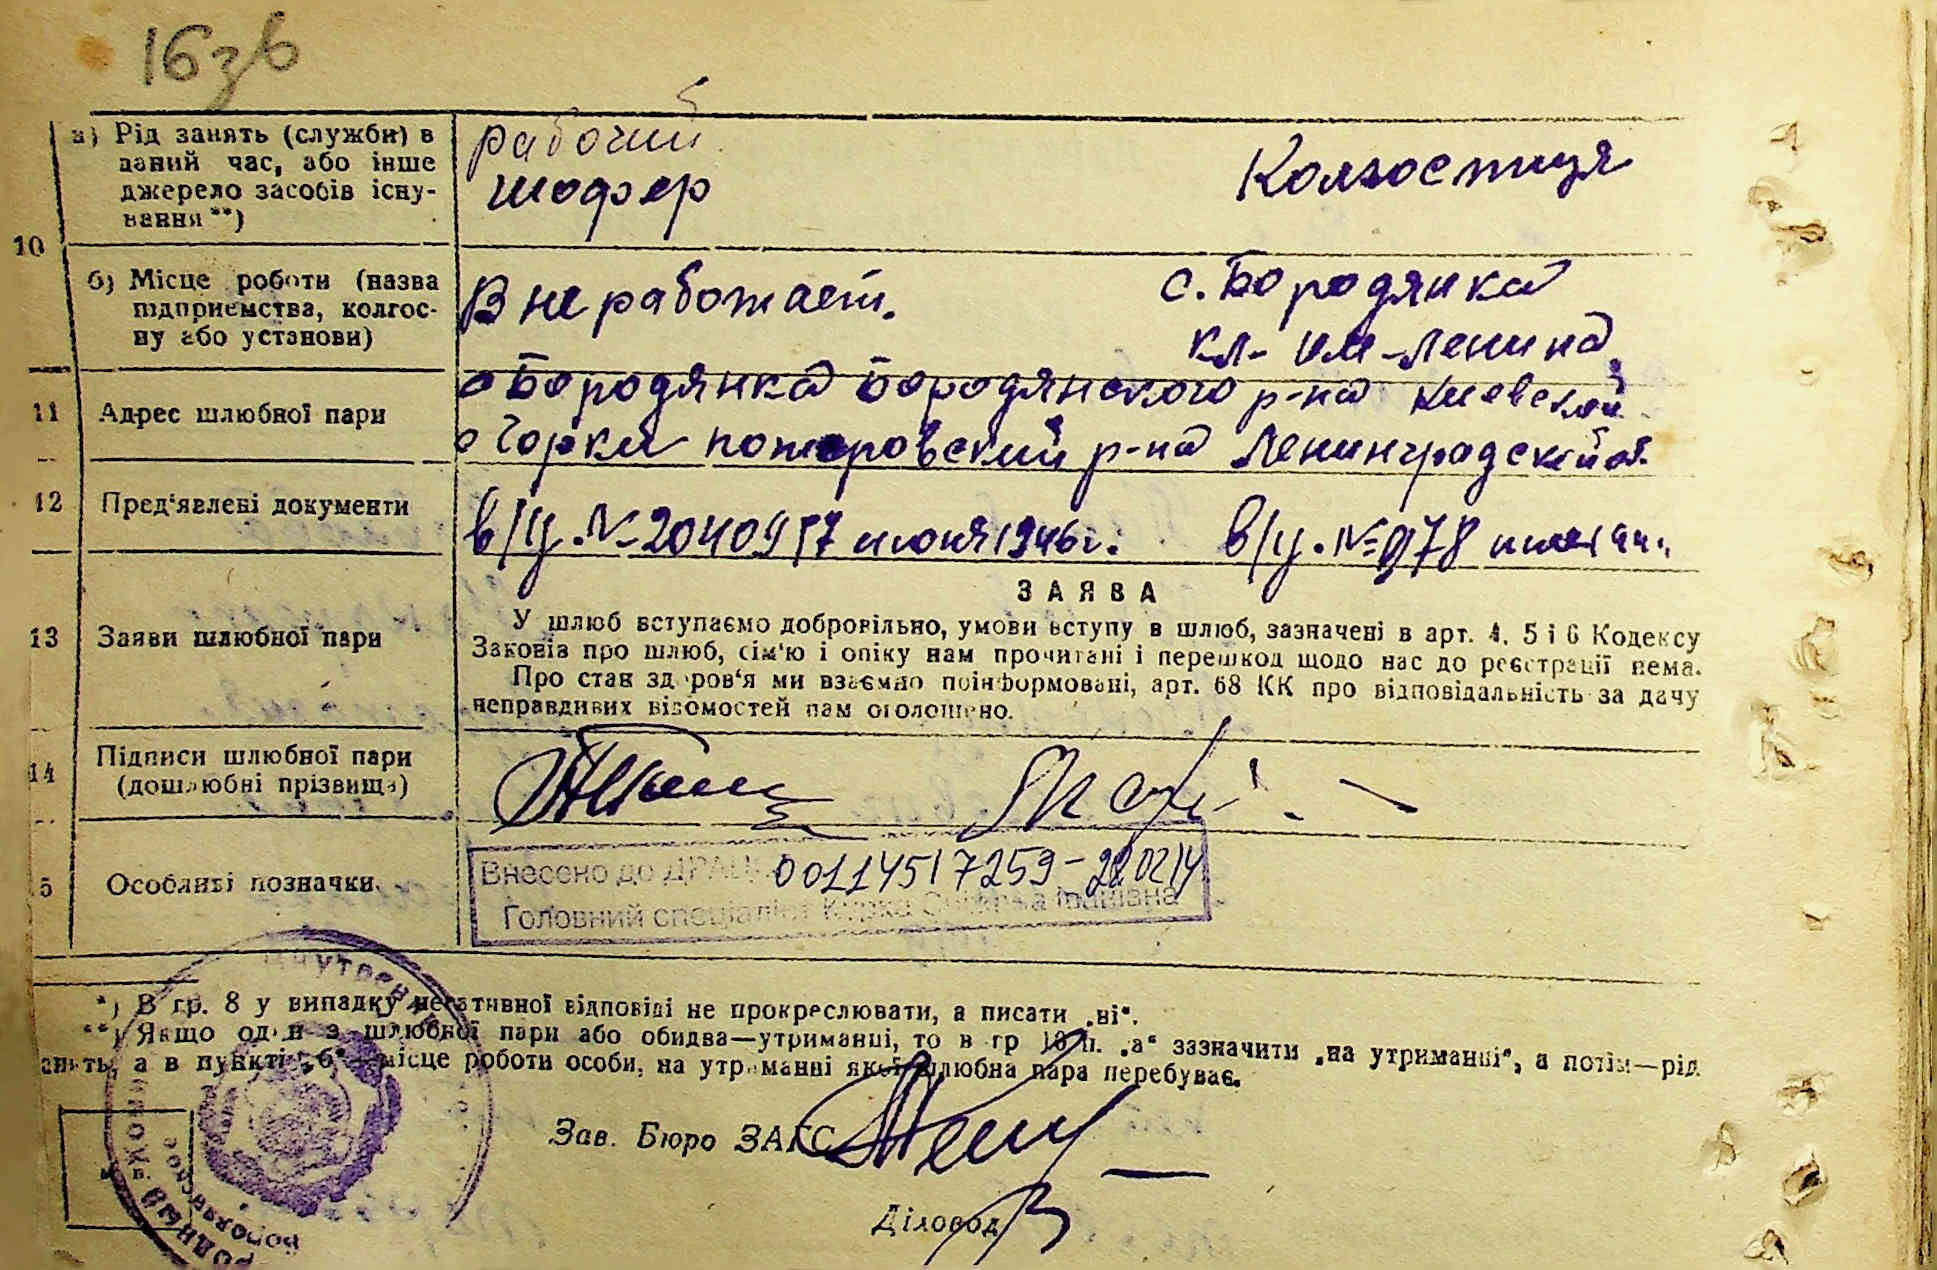 16зв
а) Рід занять (служби) в
даний час, або інше
джерело засобів існу-
вання **)
рабочий
шофер
Колгостиця
10
б) Місце роботи (назва
підприємства, колгос-
пу або установи)
не работает.
с. Бородянка
кл- им-Ленина
11
Адрес шлюбної пари
с Бородянка Бородянского р-на Киевской
с Горки р-на Ленинградской об.
12
Пред'явлені документи
в/ц. №
1946 г.
в/ц. №
13
Заяви шлюбної пари
ЗАЯВА
У шлюб вступаємо добровільно, умови вступу в шлюб, зазначені в арт. 4, 5 і 6 Кодексу
Законів про шлюб, сім'ю і опіку нам прочитані і перешкод щодо нас до реєстрації нема.
Про стан здоров'я ми взаємно поінформовані, арт. 68 КК про відповідальність за дачу
неправдивих відомостей нам оголошено.
14
Підписи шлюбної пари
(дошлюбні прізвища)
5
Особливі позначки
Внесено до ДРАЦС 00114517259-
Головний спеціаліст Іванівна
*) В гр. 8 у випадку негативної відповіді не прокреслювати, а писати „ні“.
**) Якщо один з шлюбної пари або обидва—утриманці, то в гр 10 п. „а“ зазначити „на утриманні“, а потім—рід
занять, а в пункті „б“—місце роботи особи, на утриманні якої шлюбна пара перебуває.
Зав. Бюро ЗАГС
Діловод